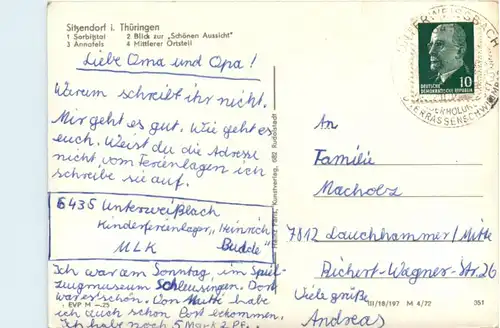 Sitzendorf i. Thüringen
1 Sorbitztal 2 Blick zur „Schönen Aussicht"
3 Annafels 4 Mittlerer Ortsteil
Liebe Oma und Opa!
Warum schreibt ihr nicht.
Mir geht es gut. Wie geht es
euch. Weist du die Adresse
nicht vom Ferienlagen ich
schreibe sie auf.
6435 Unterweißbach
Kinderferienlager „Heinrich
MLK Budde"
Ich war am Sonntag, im Spiel-
zeugmuseum Schleusingen. Dort
war es schön. Von Mutti habe
ich auch schon Post bekommen.
Ich habe noch 5 Mark 2 Pf.
EVP M -,25
Heinz Paris, Kunstverlag, 682 Rudolstadt
10
DEUTSCHE
DEMOKRATISCHE REPUBLIK
UNTERWEISSBACH
TERRASSENSCHWIMMBAD
An
Familie
Macholz
7812 Lauchhammer/Mitte
Richert-Wagner-Str. 26
Viele Grüße
Andreas
III/18/197 M 4/72 051